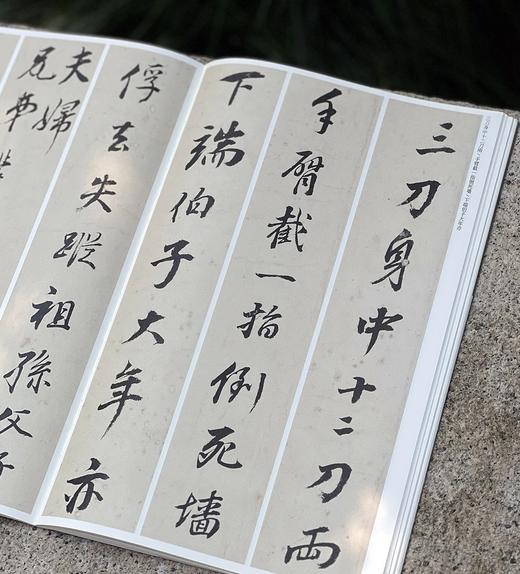 三刀身中十二刀両
手臂截一指倒死墙
下端伯子大年亦
俘去失蹤祖孫父子
夫婦
兄弟